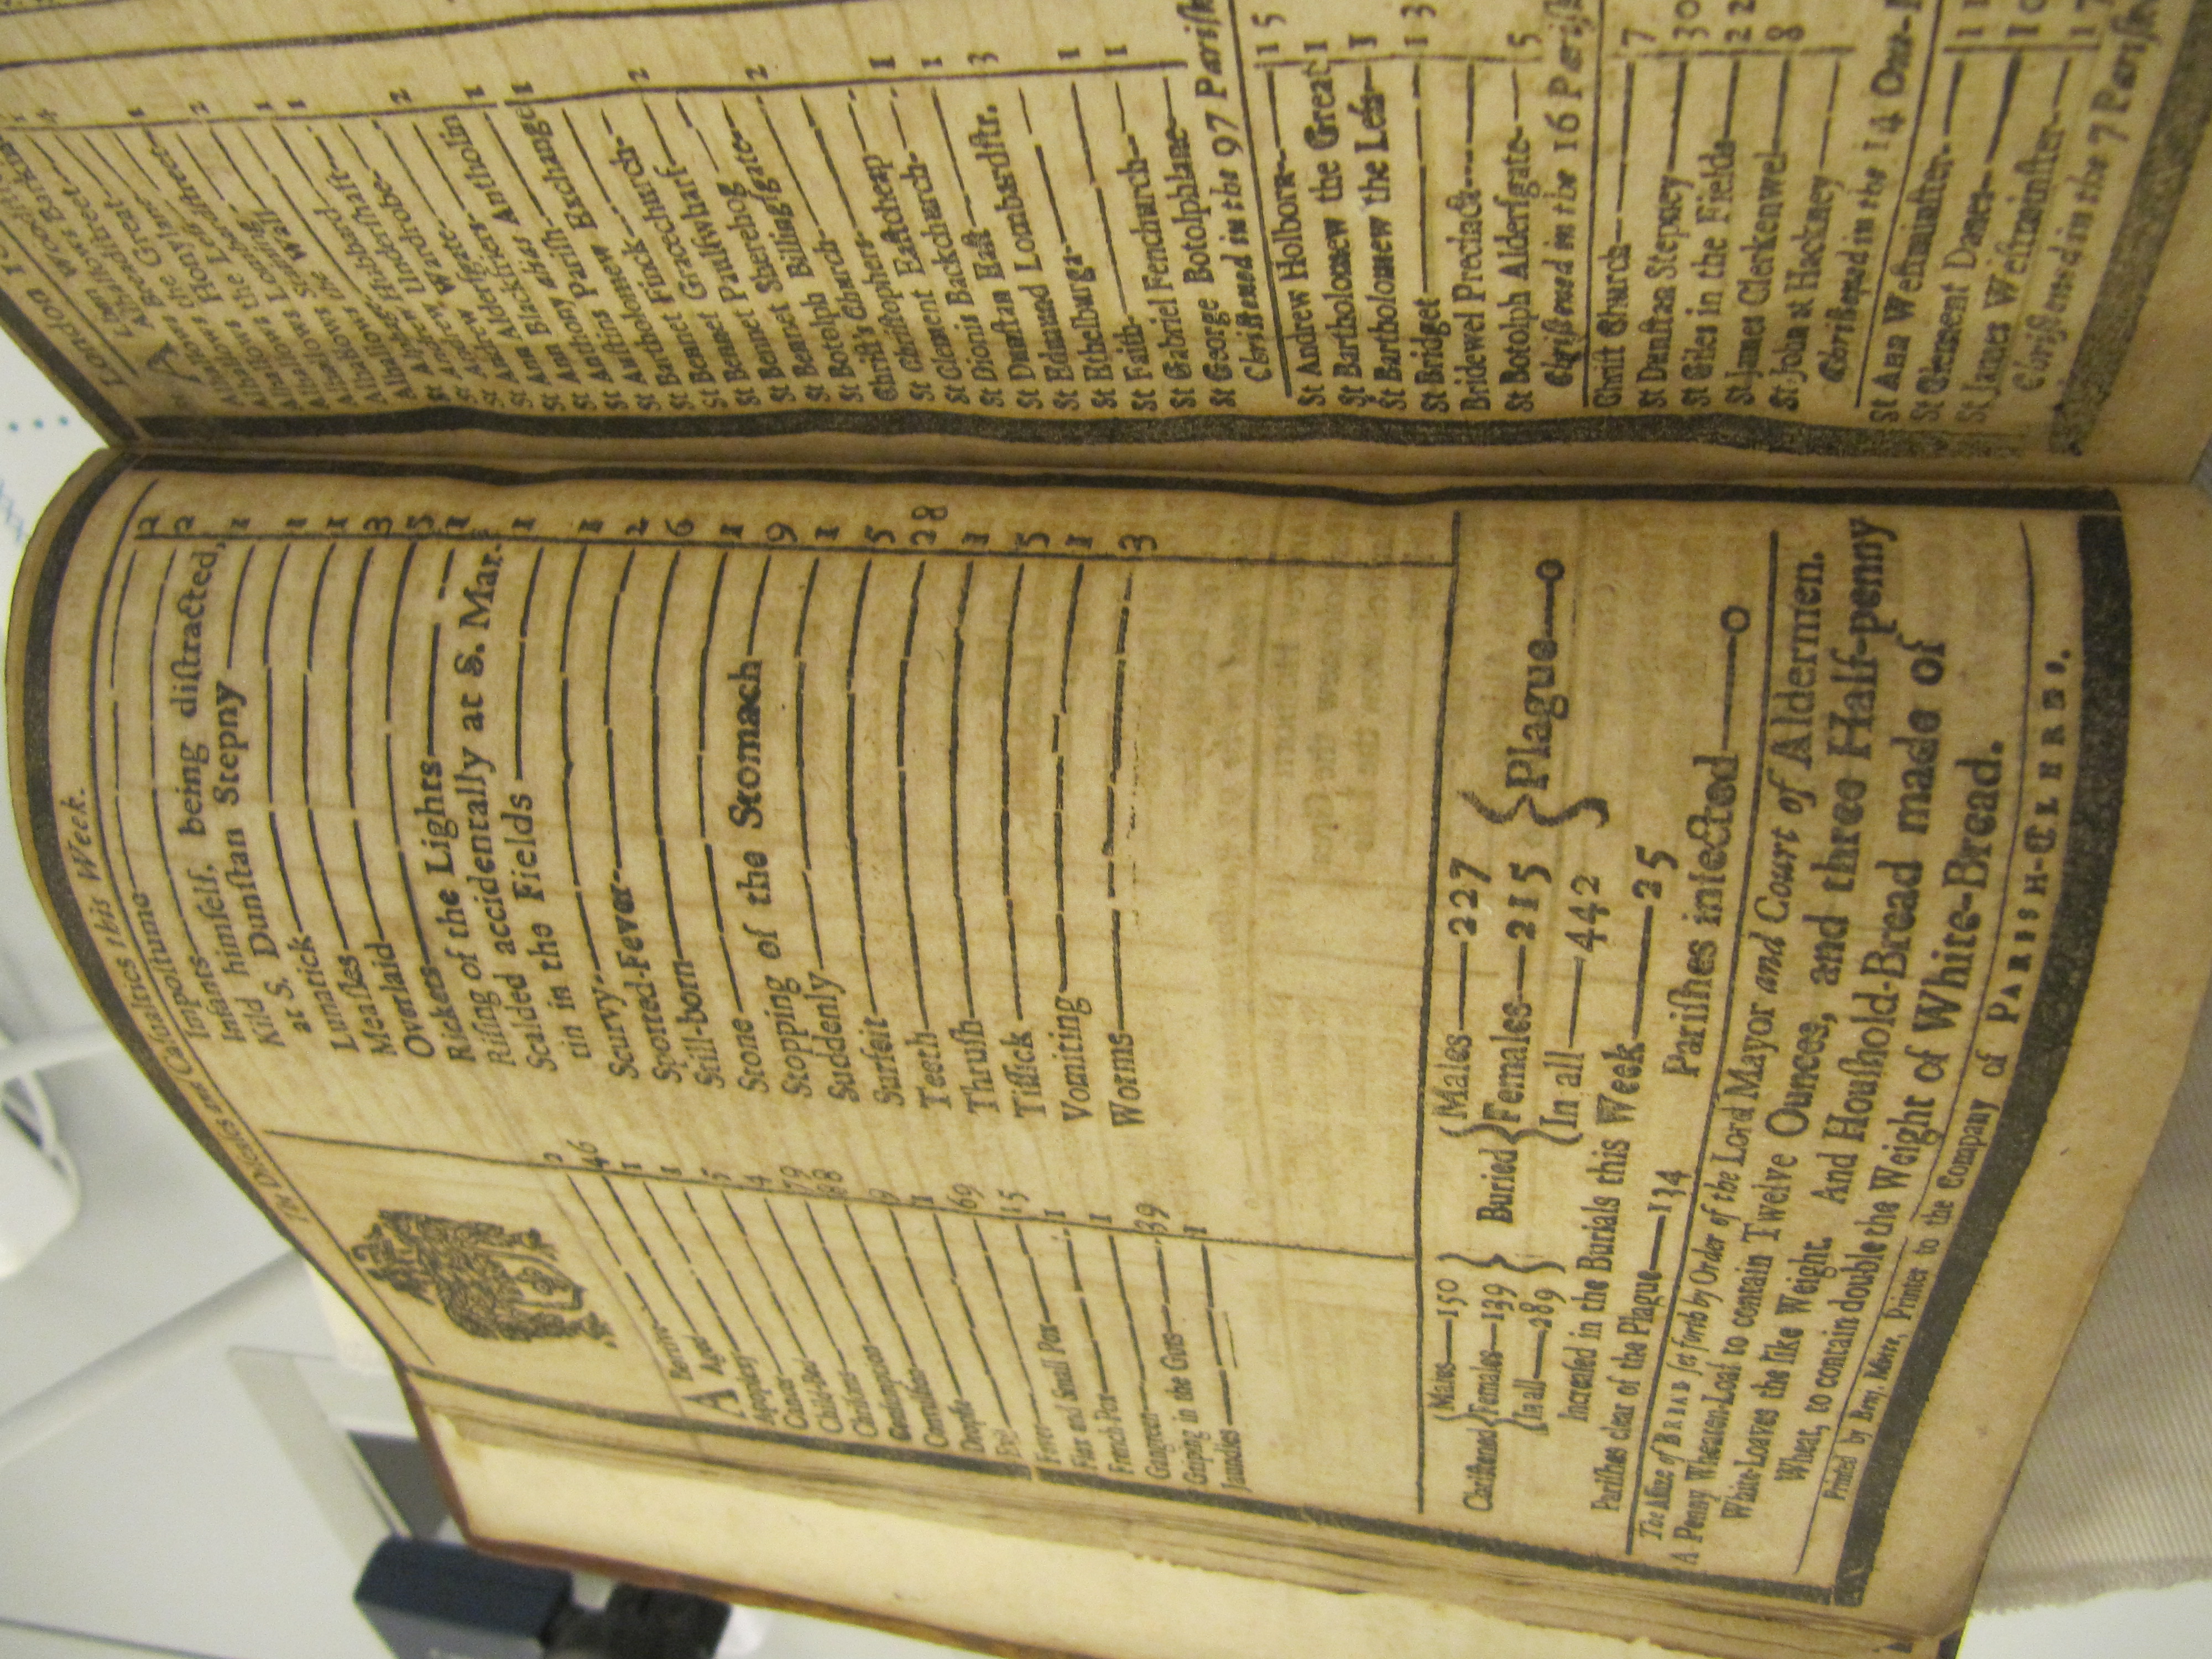 The Diseases and Casualties this Week.
ABortive
Aged 46
Apoplexy 1
Cancer 1
Child-Bed 5
Chrisomes 4
Consumption 79
Convulsion 88
Dropsie
Evil 1
Fever 69
Flox and Small Pox 15
French Pox 1
Gangrene 1
Griping in the Guts 39
Jaundies 1
Impostume 2
Infants 2
Kild himself, being distracted,
at S. Dunstan Stepny 1
Lunatick 1
Measles 1
Overlaid 3
Rickets 5
Rising of the Lights 1
Scalded accidentally at S. Mar-
tin in the Fields 1
Scurvy 1
Spotted-Fever 2
Still-born 6
Stone 1
Stopping of the Stomach 9
Suddenly 1
Surfeit 5
Teeth 28
Thrush 1
Tissick 5
Vomiting 1
Worms 3
Christened { Males—150 Females—139 In all—289 } Buried { Males—227 Females—215 In all—442 } Plague—0
Increased in the Burials this Week—25
Parishes clear of the Plague—134 Parishes infected—0
The Assize of BREAD set forth by Order of the Lord Mayor and Court of Aldermen.
A Penny Wheaten-Loaf to contain Twelve Ounces, and three Half-penny
White-Loaves the like Weight. And Houshold-Bread made of
Wheat, to contain double the Weight of White-Bread.
Printed by Benj. Motte, Printer to the Company of PARISH-CLERKS.
London
St Alban Woodstreet
Alhallows Barking
Alhallows Breadstreet
Alhallows the Great 1
Alhallows Honylane
Alhallows the Less 2
Alhallows Lombardstreet
Alhallows Staining 1
Alhallows the Wall 1
Alphage
Andrew Hubbard
St Andrew Undershaft 2
St Andrew Wardrobe
St Ann Aldersgate 1
St Ann Blackfriers
St Antholin 1
St Anthony alias Antholin
St Austins Parish
St Bartholomew Exchange
St Bennet Finck 2
St Bennet Gracechurch
St Bennet Paulswharf
St Bennet Sherehog
St Botolph Billingsgate 2
Christ's Church
St Christophers
St Clement Eastcheap 1
St Dionis Backchurch 1
St Dunstan East 3
St Edmund Lombardstr.
St Ethelburga 1
St Faith 1
St Gabriel Fenchurch
St George Botolphlane
Christened in the 97 Parish
St Andrew Holborn 15
St Bartholomew the Great 1
St Bartholomew the Less 1
St Bridget 13
Bridewel Precinct
St Botolph Aldersgate 5
Christened in the 16 Parish
Christ Church 7
St Dunstan Stepney 30
St Giles in the Fields 22
St James Clerkenwel 8
St John at Hackney
Christened in the 14 Out-
St Ann Westminster 11
St Clement Danes 10
St James Westminster 17
Christened in the 7 Parish